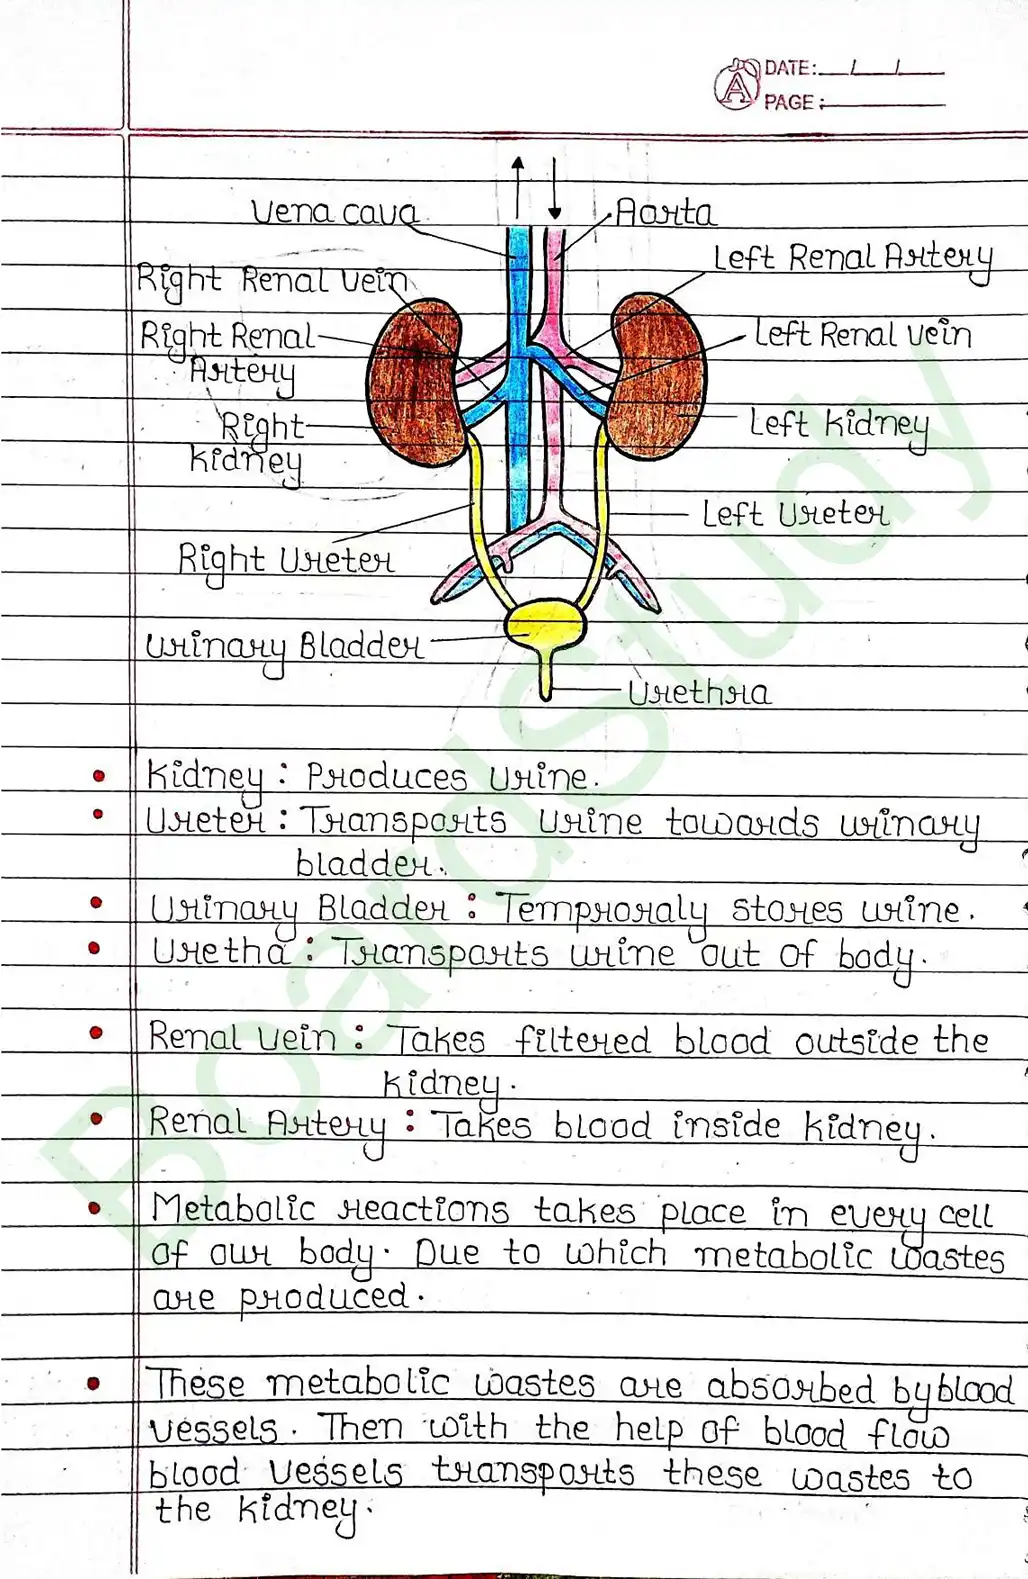 DATE: / /
PAGE:
Vena cava
Aorta
Left Renal Artery
Right Renal vein
Right Renal
Artery
Left Renal vein
Right
kidney
Left kidney
Left Ureter
Right Ureter
Urinary Bladder
Urethra
• Kidney : Produces Urine.
• Ureter : Transports Urine towards urinary
bladder.
• Urinary Bladder : Temproraly stores urine.
• Uretha : Transports urine out of body.
• Renal Vein : Takes filtered blood outside the
kidney.
• Renal Artery : Takes blood inside kidney.
• Metabolic reactions takes place in every cell
of our body. Due to which metabolic wastes
are produced.
• These metabolic wastes are absorbed by blood
vessels. Then with the help of blood flow
blood vessels transports these wastes to
the kidney.
BoardStudy